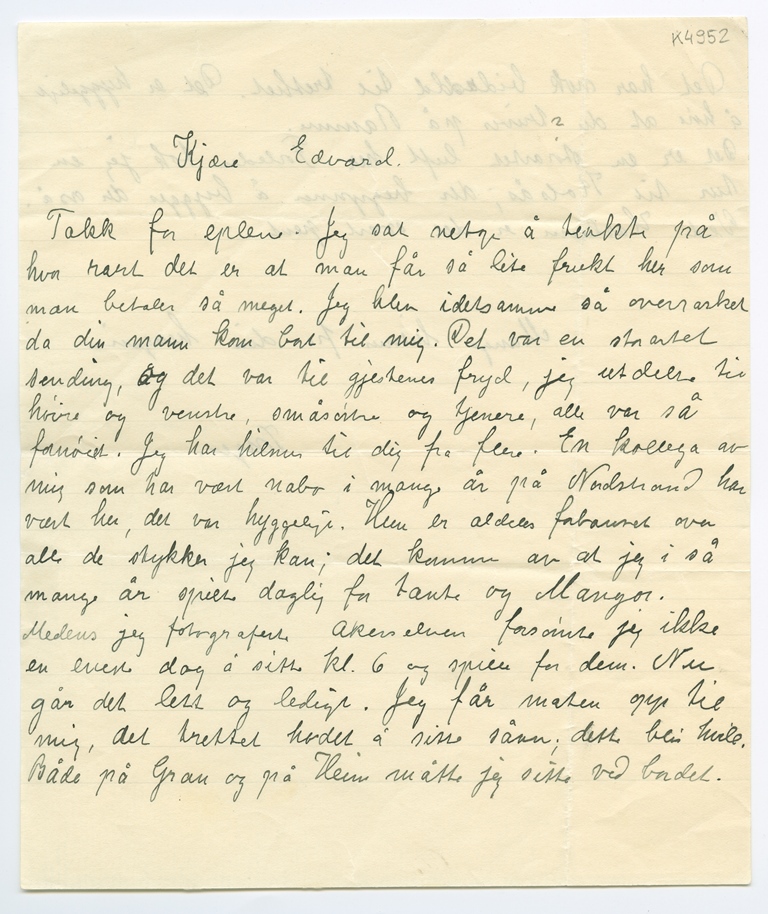 K4952
Kjære Edvard.
Takk for eplene. Jeg sat netop å tenkte på
hvor rart det er at man får så lite frukt her som
man betaler så meget. Jeg blev idetsamme så overrasket
da din mann kom bort til mig. Det var en storartet
sending, og det var til gjestenes fryd, jeg utdelte til
høire og venstre, småsøstre og tjenere, alle var så
fornøiet. Jeg har hilsner til dig fra flere. En kollega av
mig som har vært nabo i mange år på Nordstrand har
vært her, det var hyggelig. Hun er aldeles forbauset over
alle de stykker jeg kan; det kommer av at jeg i så
mange år spilte daglig for tante og Mangor.
Medens jeg fotograferte Akerselven forsømte jeg ikke
en eneste dag å sitte kl. 6 og spille for dem. Nu
går det lett og ledigt. Jeg får maten opp til
mig, det trettet hodet å sitte sånn; dette blir hvile.
Både på Gran og på Heim måtte jeg sitte ved bordet.